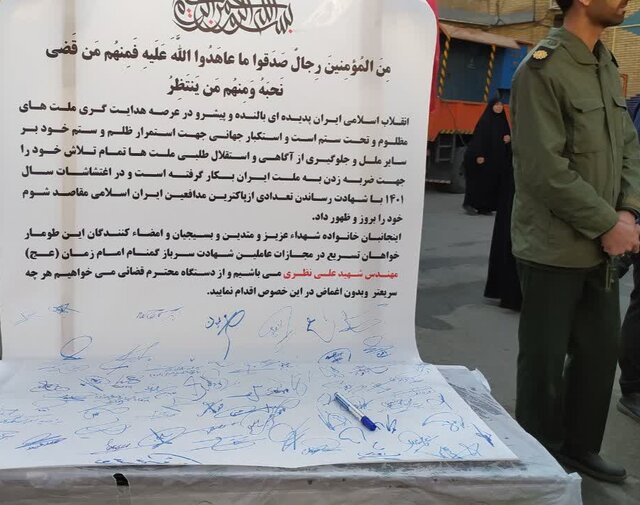 بسم الله الرحمن الرحیم
مِنَ المُؤمنینَ رِجالٌ صَدَقوا ما عاهَدُوا اللَّهَ عَلَیهِ فَمِنهُم مَن قَضی
نَحبَهُ وَمِنهُم مَن یَنتَظِرُ
انقلاب اسلامی ایران پدیده ای بالنده و پیشرو در عرصه هدایت گری ملت های
مظلوم و تحت ستم است و استکبار جهانی جهت استمرار ظلم و ستم خود بر
سایر ملل و جلوگیری از آگاهی و استقلال طلبی ملت ها تمام تلاش خود را
جهت ضربه زدن به ملت ایران بکار گرفته است و در اغتشاشات سال
۱۴۰۱ با شهادت رساندن تعدادی ازپاکترین مدافعین ایران اسلامی مقاصد شوم
خود را بروز و ظهور داد.
اینجانبان خانواده شهداء عزیز و متدین و بسیجیان و امضاء کنندگان این طومار
خواهان تسریع در مجازات عاملین شهادت سرباز گمنام امام زمان (عج)
مهندس شهید علی نظری می باشیم و از دستگاه محترم قضائی می خواهیم هر چه
سریعتر وبدون اغماض در این خصوص اقدام نمایید.